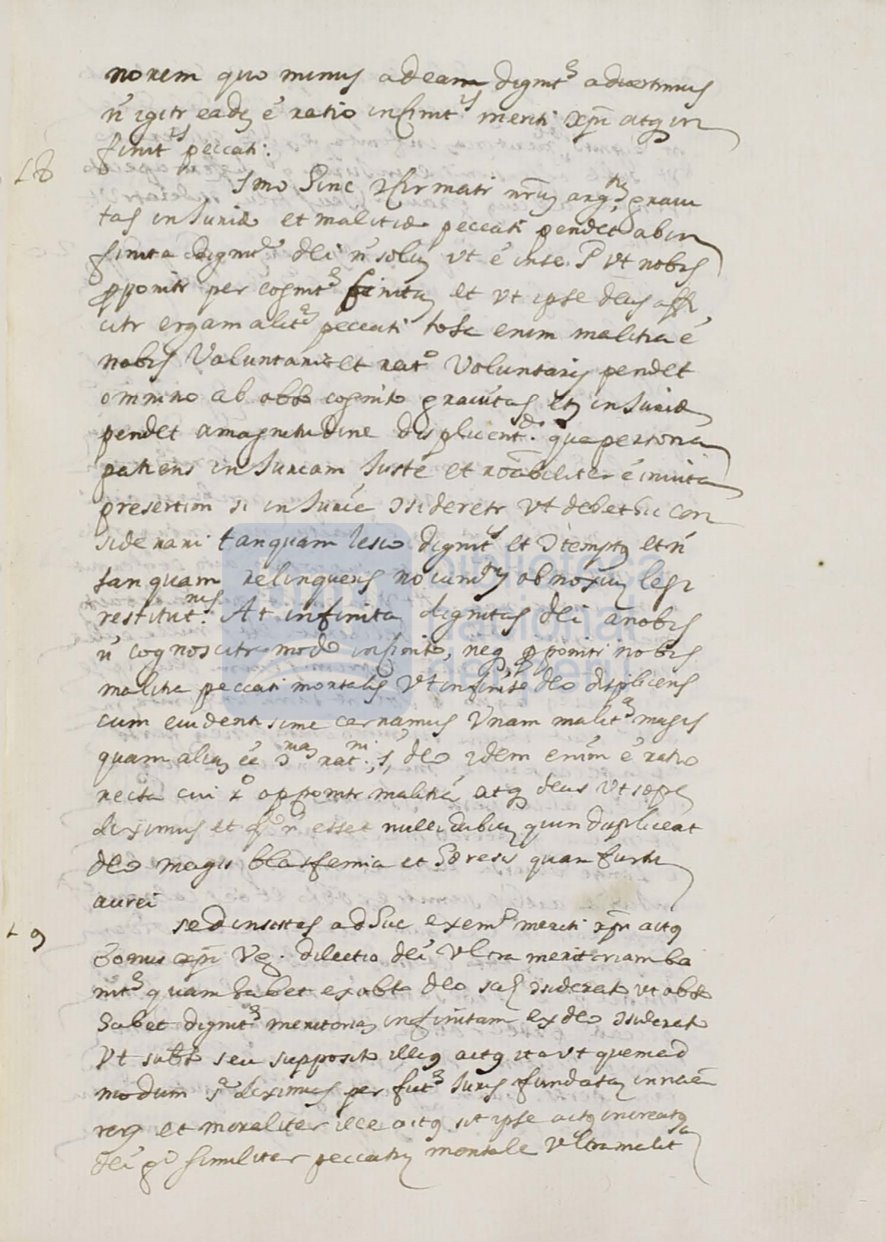 norem quo minus ad eam dignit. advertimus
n̄ igitr eadē ē ratio infinitis meriti xp̄i atq in
finitis peccati.
18
Imo hinc confirmatr nr̄m argtū gravi
tas iniuriæ et malitiæ peccati pendet ab in
finita dignite dei n̄ solū ut ē in se sed ut nobis
pponitr per cognit. finitā et ut ipse deus affi
citr erga malite peccati tosc enim malitia ē
nobis voluntaria et rato voluntarij pendet
omnino ab obto cognito gravitas etiā iniuriæ
pendet a magnitudine displicent. qua persona
patiens iniuriam iuste et roabiliter ē invita
presertim si iniuriē consideretr ut debet hic con
siderari tanquam lesio dignitis et contemptq et n̄
tanquam relinquens nocumtū obnoxiū legi
restitutnis. At infinita dignitas dei a nobis
n̄ cognoscitr modo infinito, neq pponitr nobis
malitia peccati mortalis ut infinite deo displicens
cum evidentissime cernamus unam malite magis
quam aliā ēē contra rat. deo idem enim ē ratio
recta cui opponitr malitia atq deus ut sæpe
diximus et n̄ esset nulli dubiū quin displiceat
deo magis blasfemia et hæresis quam furtū
aurei
19
sed insistas adhuc exemo meriti xp̄i actq
bonus xp̄i Vg. dilectio dei ultra meritoriam bo
nite quam habet ex obto deo considerato ut obto
habet dignite meritoriā infinitam ex deo considerato
ut subto seu supposito illiq actq ita ut quemad
modum diximus per iuris fundatā in
rerū et moraliter ille actq sit ipse actq increatq
dei similiter peccatū mortale ultra malit